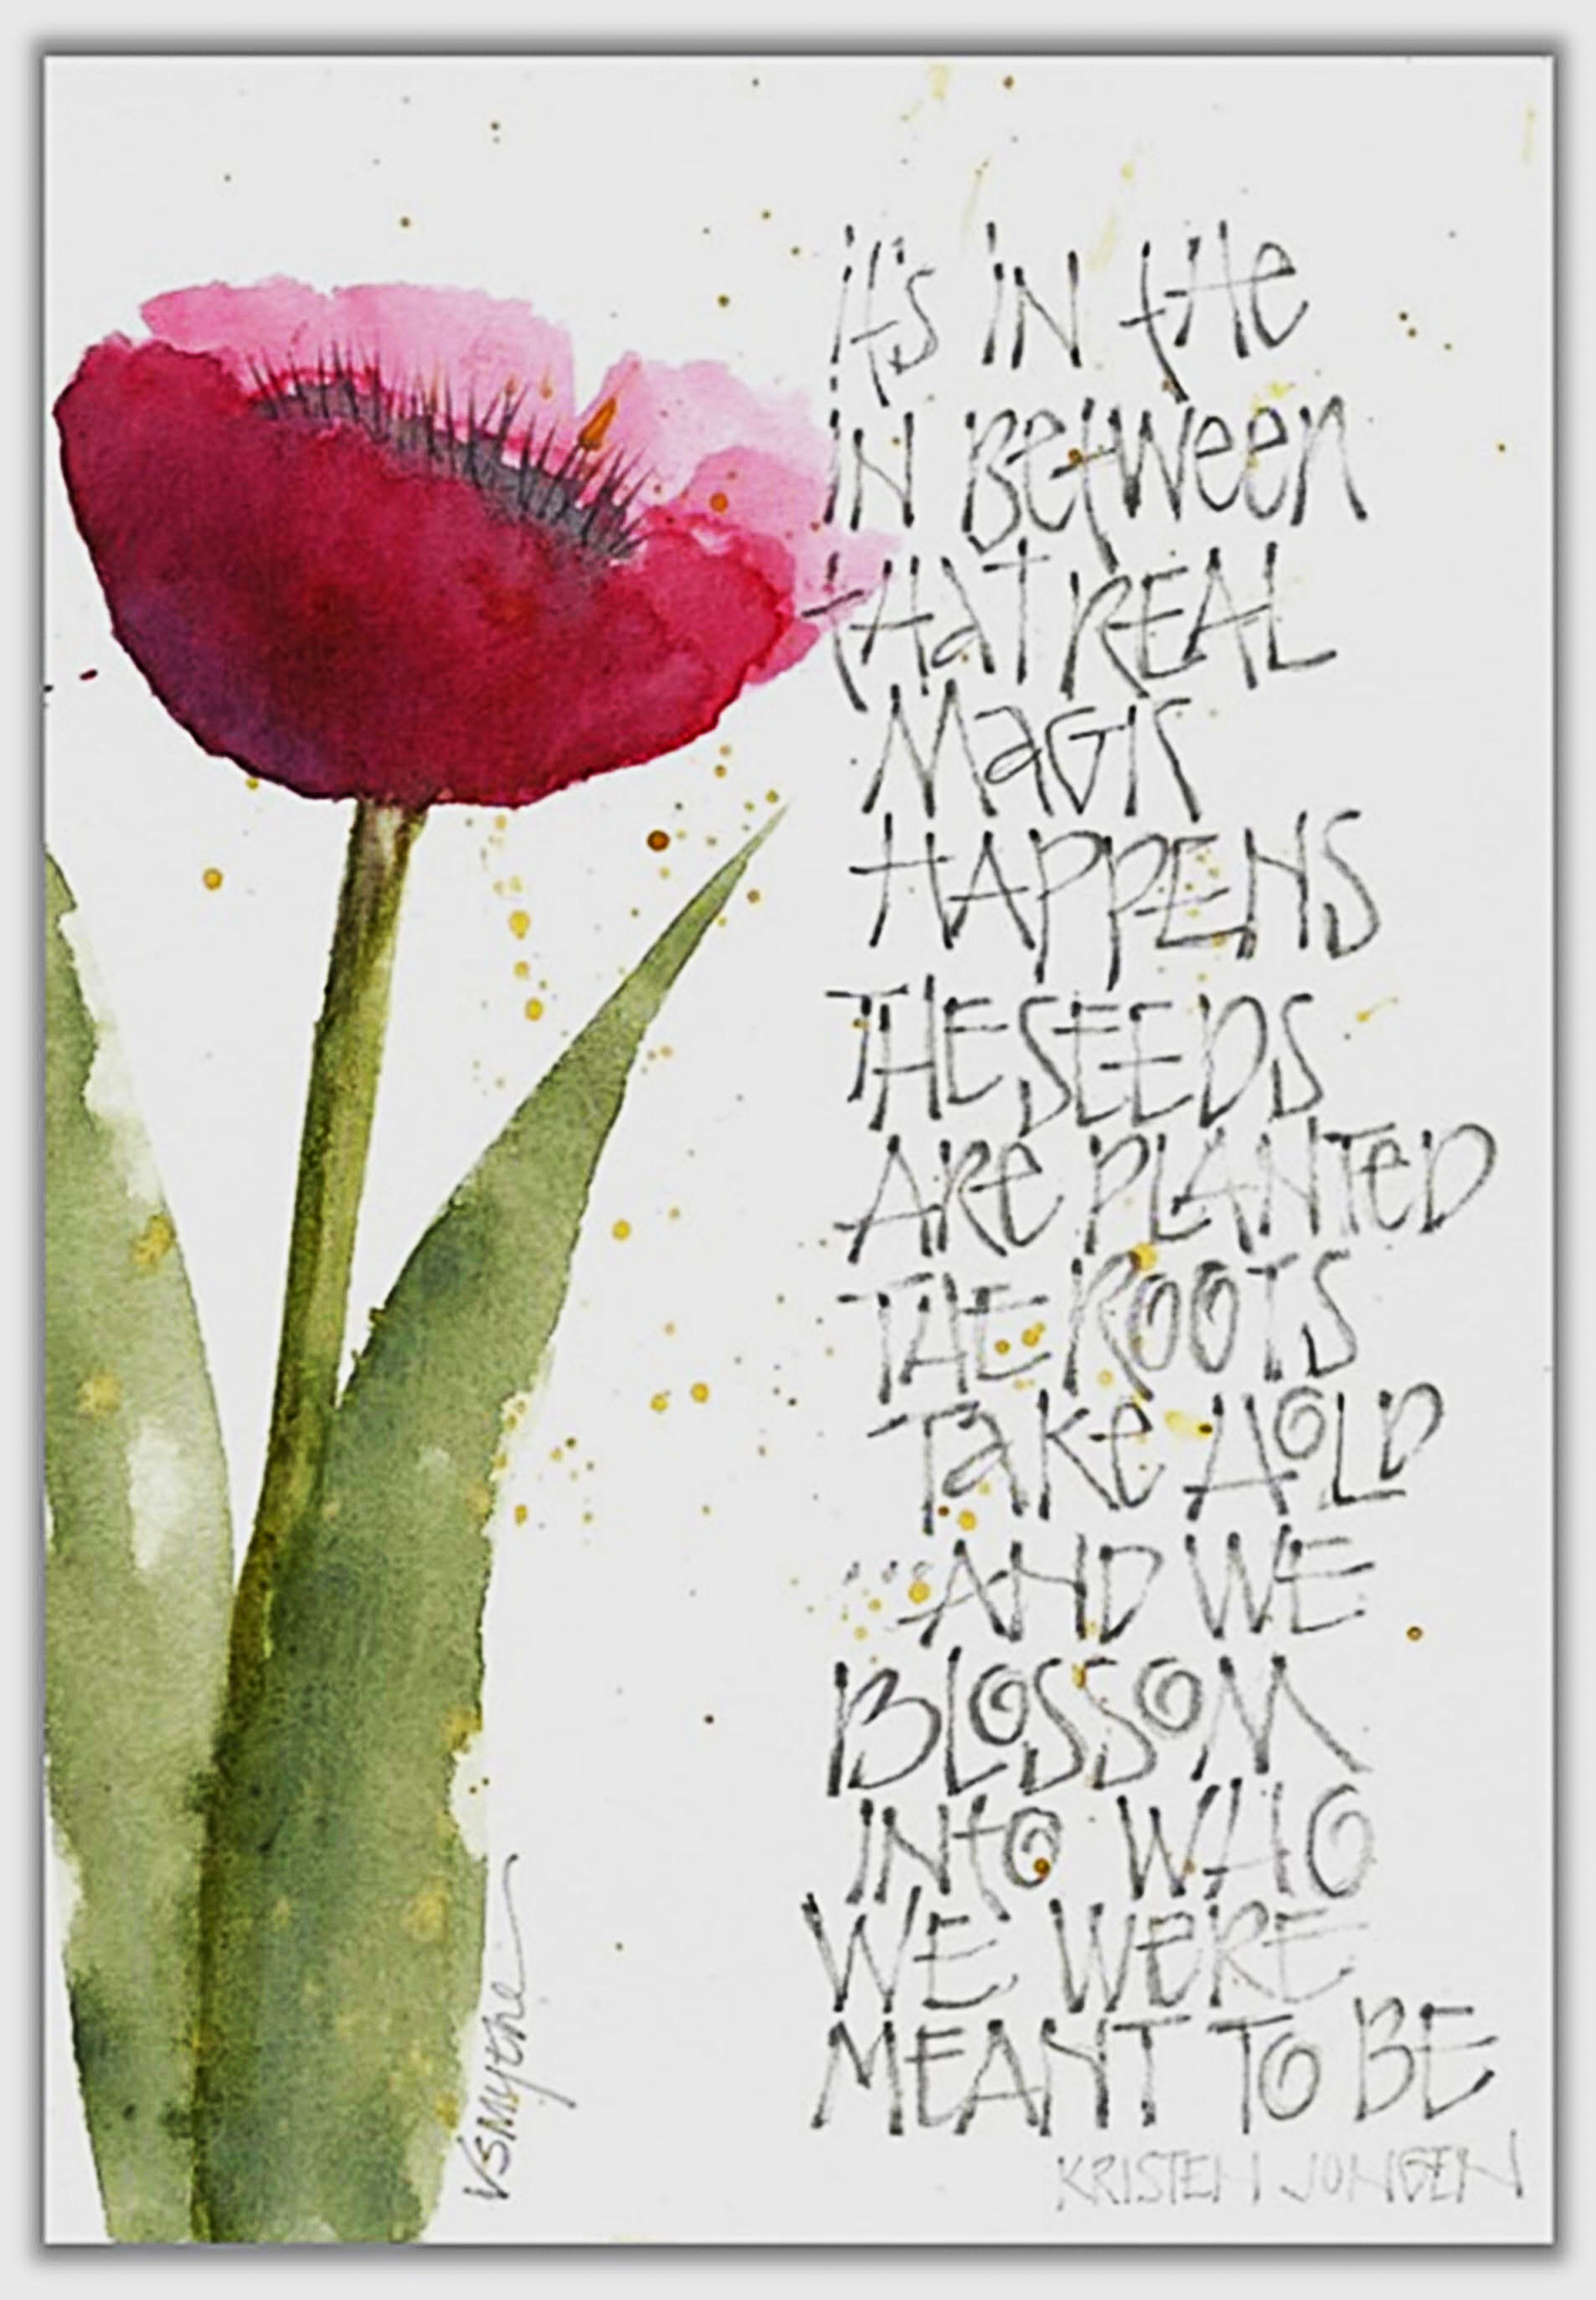 it's in the
in Between
that REAL
MaGic
HAPPENS
THE SEEDS
ARe PLANTeD
THE ROOTS
Take HOLD
...AND WE
BLOSSOM
INto WHO
WE WeRE
MEANT TO BE
KRISTEN JONGEN
VSMythe